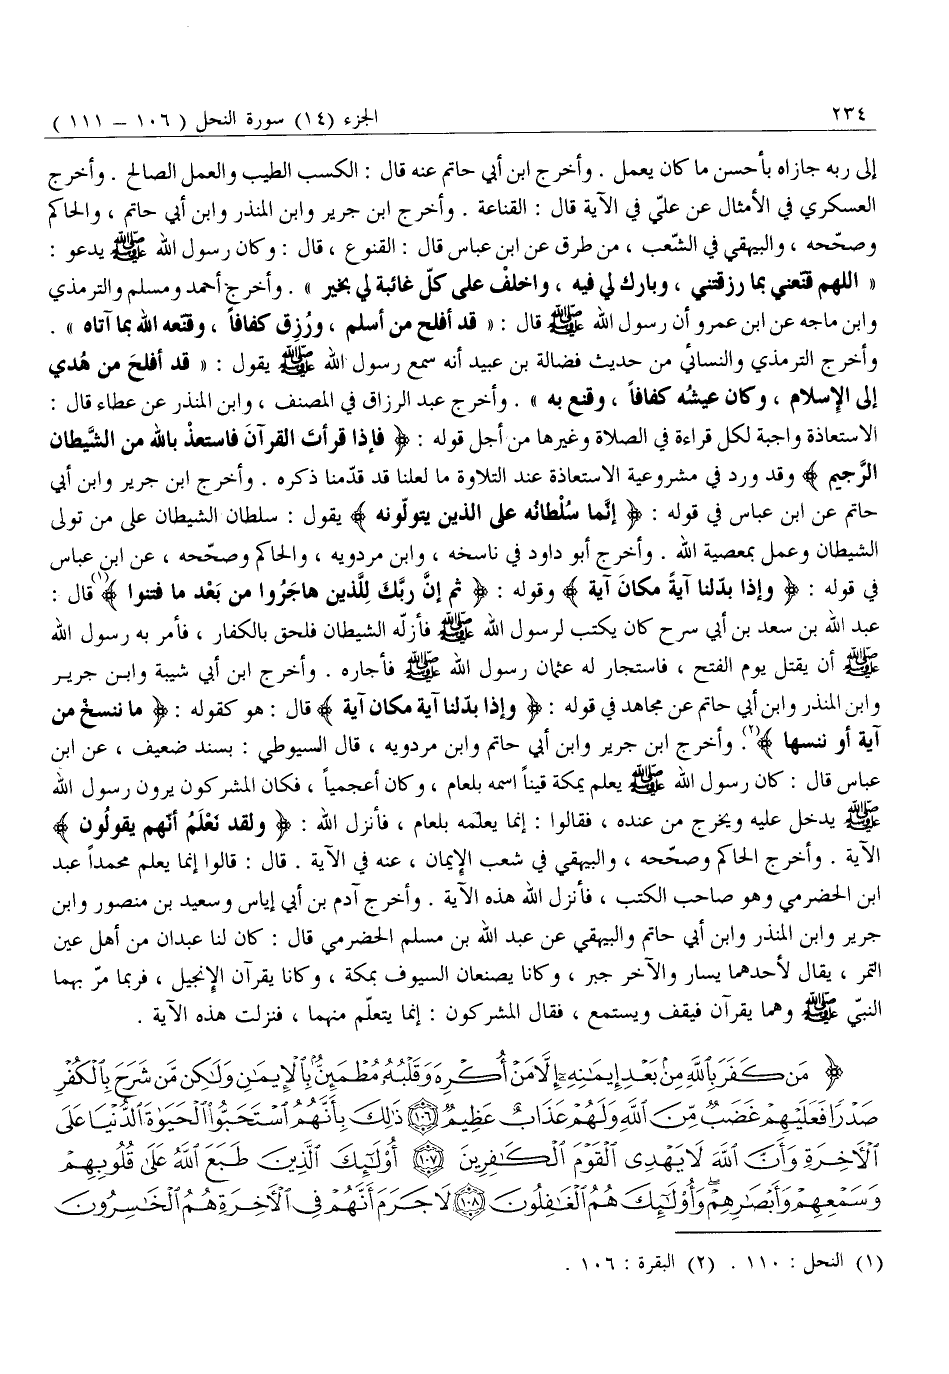 ٢٣٤ الجزء (١٤) سورة النحل ( ١٠٦ – ١١١ )
إلى ربه جازاه بأحسن ما كان يعمل . وأخرج ابن أبي حاتم عنه قال : الكسب الطيب والعمل الصالح . وأخرج
العسكري في الأمثال عن عليّ في الآية قال : القناعة . وأخرج ابن جرير وابن المنذر وابن أبي حاتم ، والحاكم
وصحّحه ، والبيهقي في الشّعب ، من طرق عن ابن عباس قال : القنوع ، قال : وكان رسول الله ﷺ يدعو :
« اللهم قنّعني بما رزقتني ، وبارك لي فيه ، واخلفْ على كلّ غائبة لي بخير » . وأخرج أحمد ومسلم والترمذي
وابن ماجه عن ابن عمرو أن رسول الله ﷺ قال : « قد أفلح من أسلم ، ورُزِق كفافاً ، وقنّعه الله بما آتاه » .
وأخرج الترمذي والنسائي من حديث فضالة بن عبيد أنه سمع رسول الله ﷺ يقول : « قد أفلحَ من هُدي
إلى الإسلام ، وكان عيشُه كفافاً ، وقنع به » . وأخرج عبد الرزاق في المصنف ، وابن المنذر عن عطاء قال :
الاستعاذة واجبة لكل قراءة في الصلاة وغيرها من أجل قوله : ﴿ فإذا قرأتَ القرآنَ فاستعذْ بالله من الشَّيطان
الرَّجيم ﴾ وقد ورد في مشروعية الاستعاذة عند التلاوة ما لعلنا قد قدّمنا ذكره . وأخرج ابن جرير وابن أبي
حاتم عن ابن عباس في قوله : ﴿ إنَّما سُلْطانُه على الذين يتولّونه ﴾ يقول : سلطان الشيطان على من تولى
الشيطان وعمل بمعصية الله . وأخرج أبو داود في ناسخه ، وابن مردويه ، والحاكم وصحّحه ، عن ابن عباس
في قوله : ﴿ وإذا بدّلنا آيةً مكانَ آية ﴾ وقوله : ﴿ ثم إنَّ ربَّكَ لِلَّذين هاجَرُوا من بَعْد ما فتنوا ﴾(١) قال :
عبد الله بن سعد بن أبي سرح كان يكتب لرسول الله ﷺ فأزلّه الشيطان فلحق بالكفار ، فأمر به رسول الله
ﷺ أن يقتل يوم الفتح ، فاستجار له عثمان رسول الله ﷺ فأجاره . وأخرج ابن أبي شيبة وابن جرير
وابن المنذر وابن أبي حاتم عن مجاهد في قوله : ﴿ وإذا بدّلنا آية مكان آية ﴾ قال : هو كقوله : ﴿ ما ننسخْ من
آية أو ننسها ﴾(٢). وأخرج ابن جرير وابن أبي حاتم وابن مردويه ، قال السيوطي : بسند ضعيف ، عن ابن
عباس قال : كان رسول الله ﷺ يعلم بمكة قيناً اسمه بلعام ، وكان أعجمياً ، فكان المشركون يرون رسول الله
ﷺ يدخل عليه ويخرج من عنده ، فقالوا : إنما يعلّمه بلعام ، فأنزل الله : ﴿ ولقد نَعْلَمُ أنّهم يقولُون ﴾
الآية . وأخرج الحاكم وصحّحه ، والبيهقي في شعب الإيمان ، عنه في الآية . قال : قالوا إنما يعلم محمداً عبد
ابن الحضرمي وهو صاحب الكتب ، فأنزل الله هذه الآية . وأخرج آدم بن أبي إياس وسعيد بن منصور وابن
جرير وابن المنذر وابن أبي حاتم والبيهقي عن عبد الله بن مسلم الحضرمي قال : كان لنا عبدان من أهل عين
التمر ، يقال لأحدهما يسار والآخر جبر ، وكانا يصنعان السيوف بمكة ، وكانا يقرآن الإنجيل ، فربما مرّ بهما
النبيّ ﷺ وهما يقرآن فيقف ويستمع ، فقال المشركون : إنما يتعلّم منهما ، فنزلت هذه الآية .
﴿ مَن كَفَرَ بِٱللَّهِ مِنۢ بَعْدِ إِيمَٰنِهِۦٓ إِلَّا مَنْ أُكْرِهَ وَقَلْبُهُۥ مُطْمَئِنٌّۢ بِٱلْإِيمَٰنِ وَلَٰكِن مَّن شَرَحَ بِٱلْكُفْرِ
صَدْرًا فَعَلَيْهِمْ غَضَبٌ مِّنَ ٱللَّهِ وَلَهُمْ عَذَابٌ عَظِيمٌ ١٠٦ ذَٰلِكَ بِأَنَّهُمُ ٱسْتَحَبُّوا۟ ٱلْحَيَوٰةَ ٱلدُّنْيَا عَلَى
ٱلْآخِرَةِ وَأَنَّ ٱللَّهَ لَا يَهْدِى ٱلْقَوْمَ ٱلْكَٰفِرِينَ ١٠٧ أُو۟لَٰٓئِكَ ٱلَّذِينَ طَبَعَ ٱللَّهُ عَلَىٰ قُلُوبِهِمْ
وَسَمْعِهِمْ وَأَبْصَٰرِهِمْ ۖ وَأُو۟لَٰٓئِكَ هُمُ ٱلْغَٰفِلُونَ ١٠٨ لَا جَرَمَ أَنَّهُمْ فِى ٱلْآخِرَةِ هُمُ ٱلْخَٰسِرُونَ
(١) النحل : ١١٠ . (٢) البقرة : ١٠٦ .